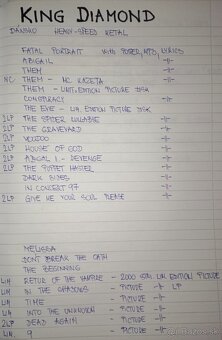 KING DIAMOND
DÁNSKO HEAVY-SPEED METAL
FATAL PORTRAIT WITH POSTER, MP3, LYRICS
ABIGAIL -||-
THEM -||-
MC THEM - MC KAZETA -||-
THEM - LIM. EDITION PICTURE DISK
CONSPIRACY -||-
THE EYE - LIM. EDITION PICTURE DISK
2LP THE SPIDER LULLABIE -||-
2LP THE GRAVEYARD -||-
2LP VOODOO -||-
2LP HOUSE OF GOD -||-
2LP ABIGAIL II - REVENGE -||-
2LP THE PUPPET MASTER -||-
DARK SIDES -||-
IN CONCERT 87 -||-
2LP GIVE ME YOUR SOUL PLEASE -||-
MELISSA
DONT BREAK THE OATH
THE BEGINNING
LIM RETUR. OF THE VAMPIRE - 2000 LIM EDITION PICTURE
LIM IN THE SHADOWS - PICTURE -||- LP
LIM TIME - PICTURE -||-
LIM INTO THE UNKNOWN - PICTURE -||-
2LP DEAD AGAIN - PICTURE -||-
LIM. 9 - PICTURE -||-